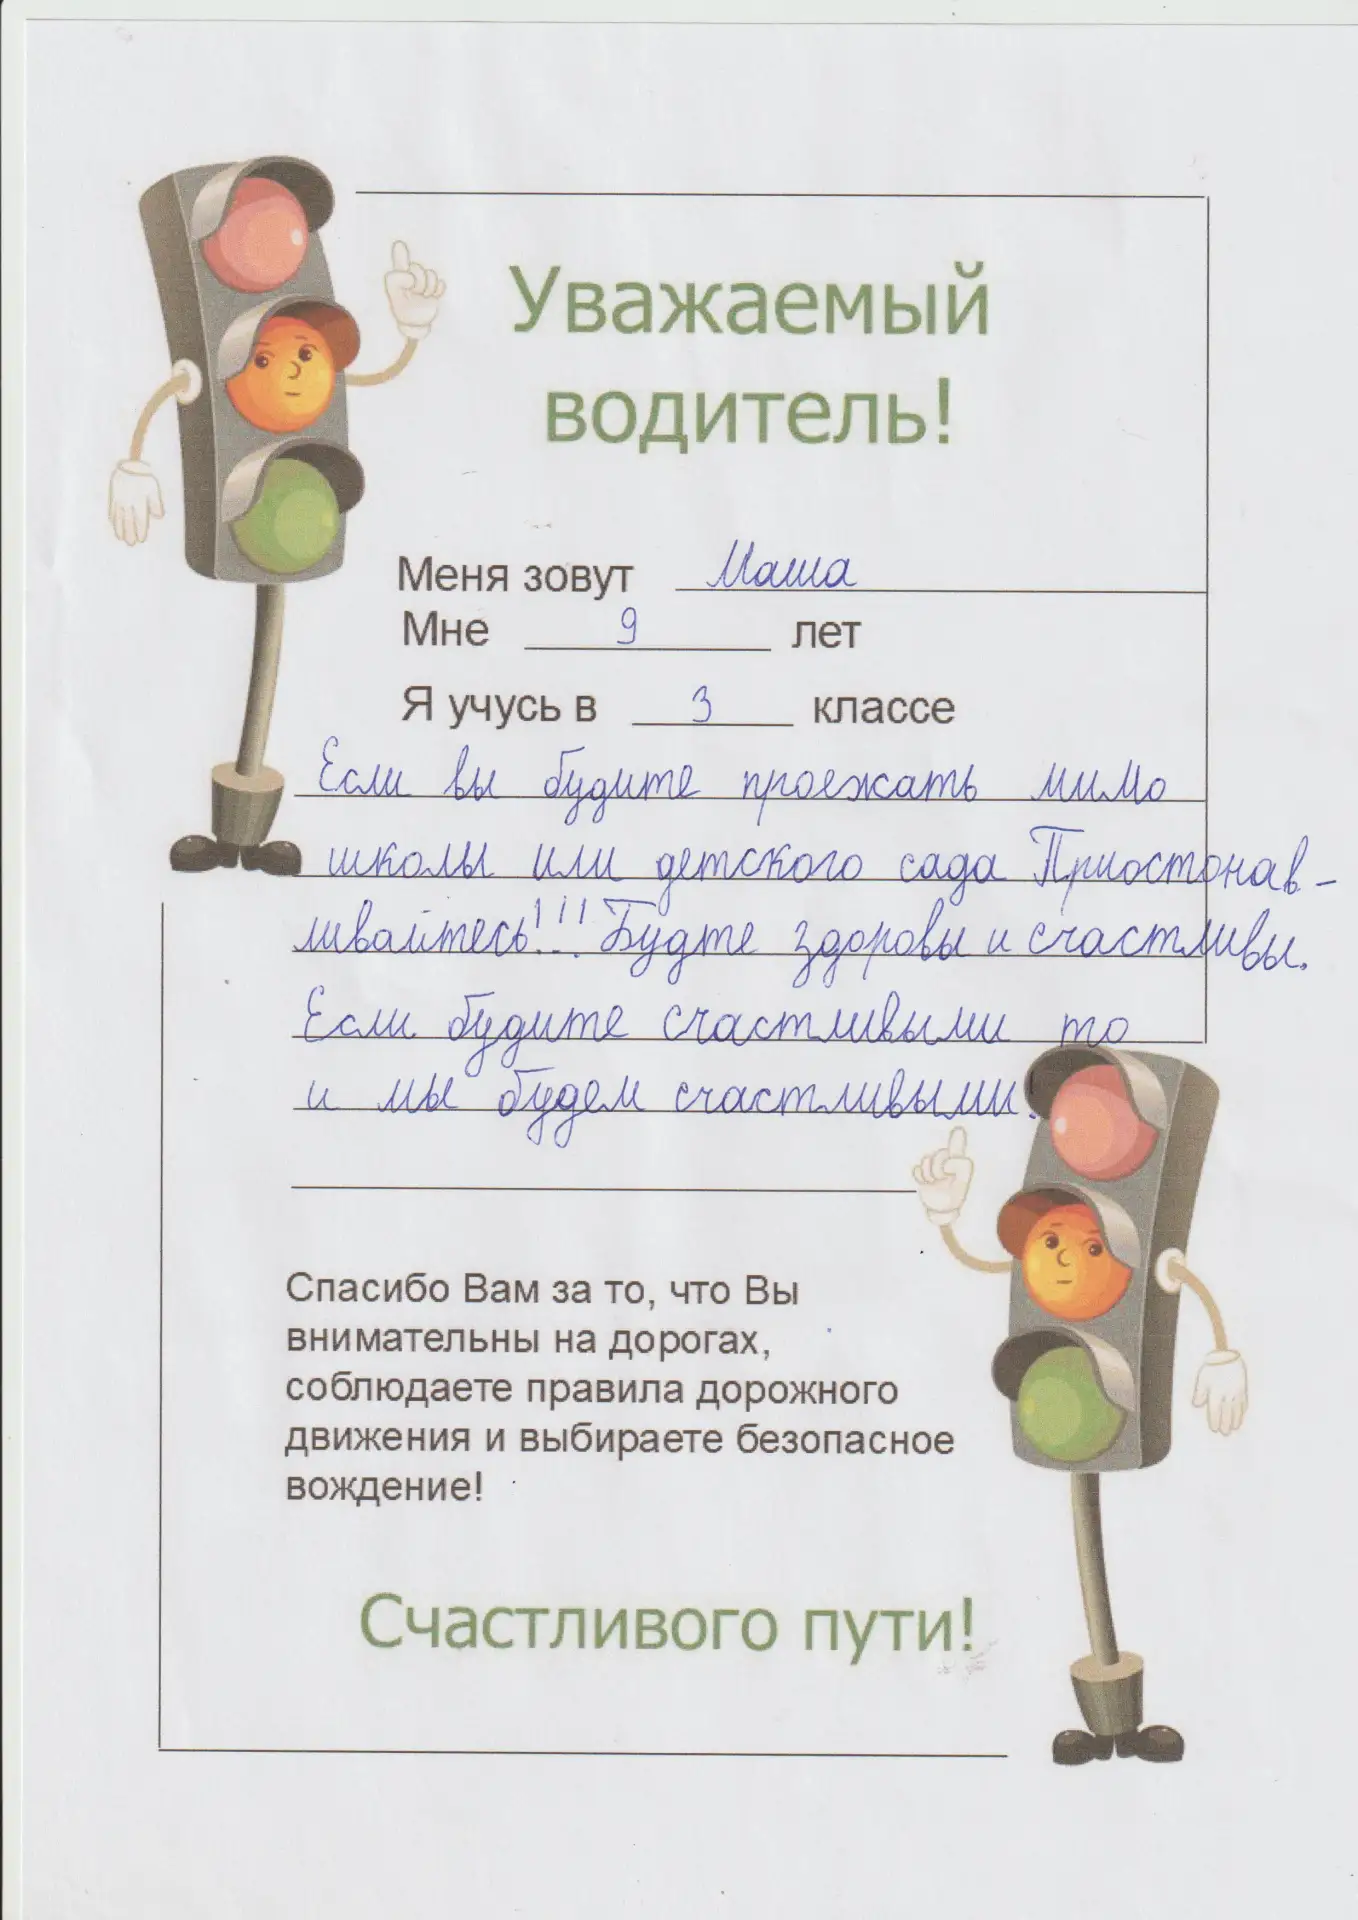 Уважаемый
водитель!
Меня зовут Маша
Мне 9 лет
Я учусь в 3 классе
Если вы будите проежать мимо
школы или детского сада Приостонав-
ливайтесь!!! Будте здоровы и счастливы.
Если будите счастливыми то
и мы будем счастливыми!
Спасибо Вам за то, что Вы
внимательны на дорогах,
соблюдаете правила дорожного
движения и выбираете безопасное
вождение!
Счастливого пути!